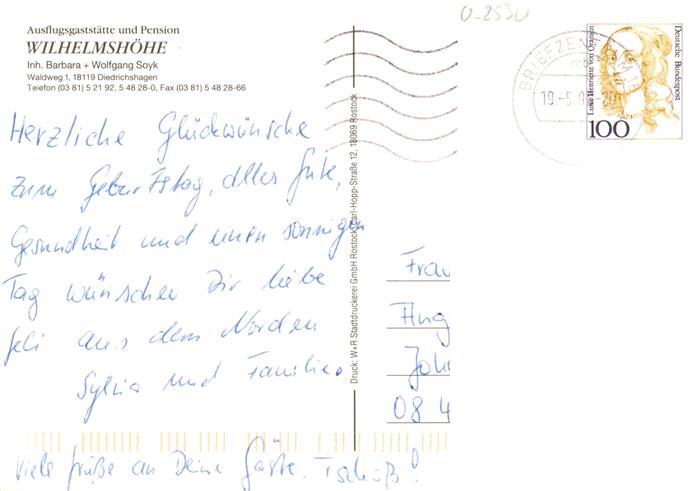 Ausflugsgaststätte und Pension
WILHELMSHÖHE
Inh. Barbara + Wolfgang Soyk
Waldweg 1, 18119 Diedrichshagen
Telefon (03 81) 5 21 92, 5 48 28-0, Fax (03 81) 5 48 28-66
Herzliche Glückwünsche
zum Geburtstag, alles Gute,
Gesundheit und einen sonnigen
Tag wünschen Dir liebe
aus dem Norden
Sylvia und Familie.
Viele Grüße an Deine Gäste. Tschüß!
Druck: W+R Stadtdruckerei GmbH Rostock, Carl-Hopp-Straße 12, 18069 Rostock
0-2530
BRIEFZEN
19.-5.9
Luise Henriette von Oranien
Deutsche Bundespost
100
Frau
Joh
08 4